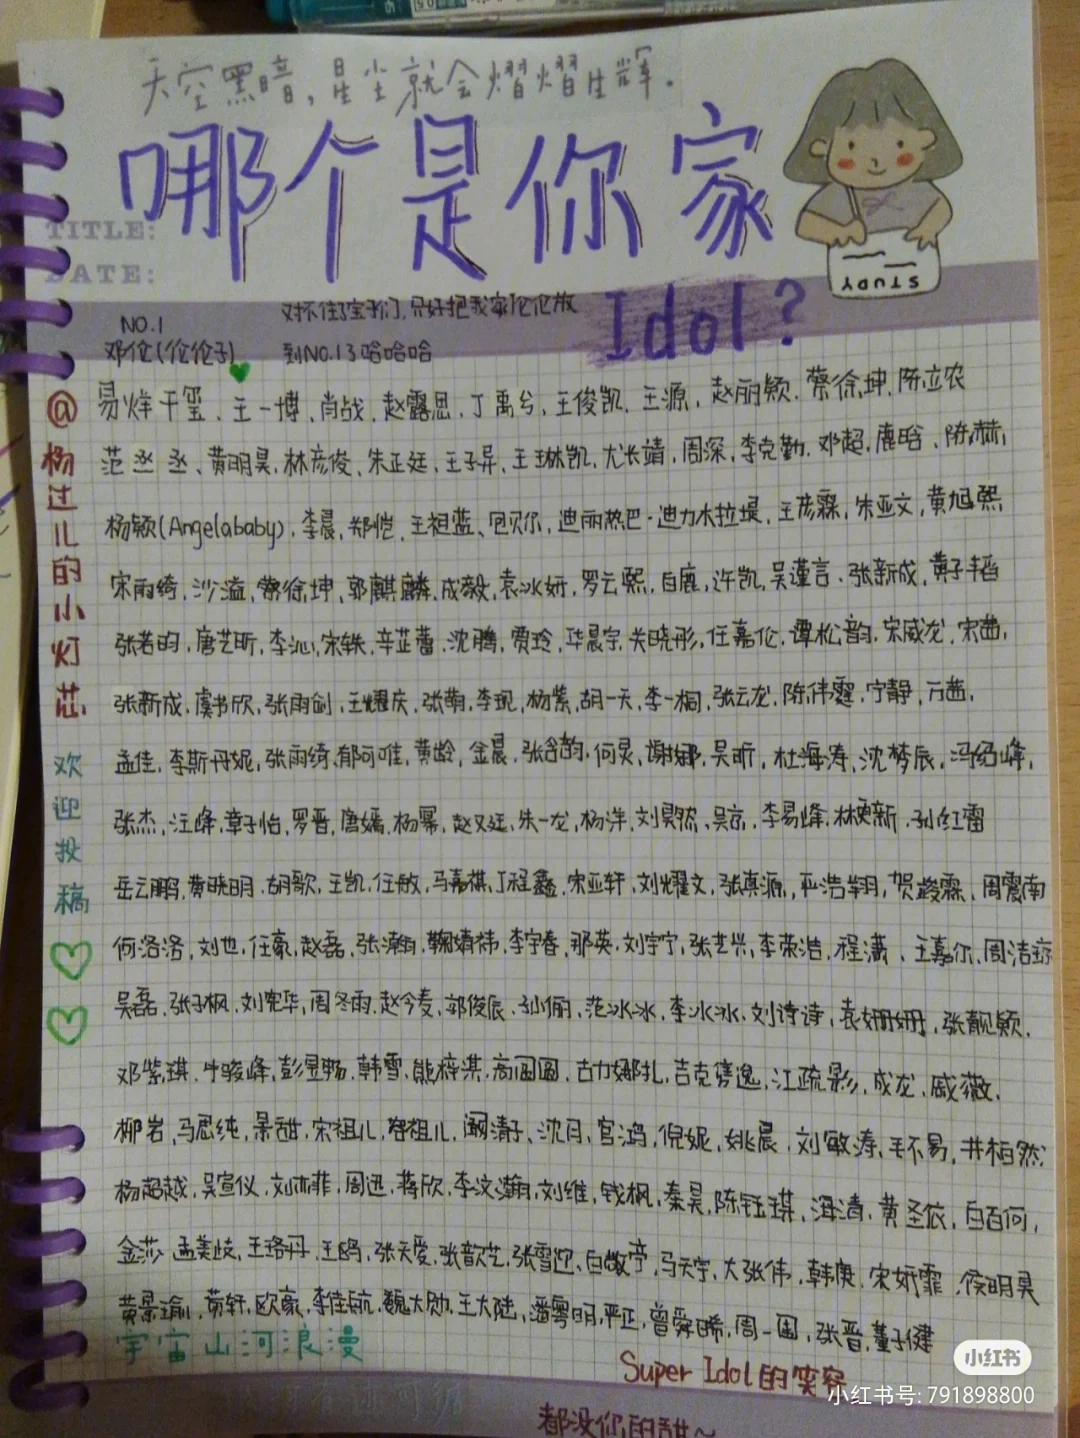 天空黑暗，星尘就会熠熠生辉.
哪个是你家
Idol?
TITLE:
DATE:
STUDY
NO.1
邓伦(伦伦子)
对不住了宝子们,只好把我家伦伦放
到NO.13哈哈哈
@杨过儿的小灯芯
欢迎投稿
易烊千玺、王一博、肖战、赵露思、丁禹兮、王俊凯、王源、赵丽颖、蔡徐坤、陈立农
范丞丞、黄明昊、林彦俊、朱正廷、王子异、王琳凯、尤长靖、周深、李克勤、邓超、鹿晗、陈赫,
杨颖(Angelababy)、李晨、郑恺、王祖蓝、包贝尔、迪丽热巴·迪力木拉提、王彦霖、朱亚文、黄旭熙
宋雨绮、沙溢、蔡徐坤、郭麒麟、成毅、袁冰妍、罗云熙、白鹿、许凯、吴谨言、张新成、黄子韬
张若昀,唐艺昕,李沁,宋轶,辛芷蕾,沈腾,贾玲,华晨宇,关晓彤,任嘉伦,谭松韵,宋威龙,宋茜,
张新成,虞书欣,张雨剑,王耀庆,张萌,李现,杨紫,胡一天,李一桐,张云龙,陈伟霆,宁静,万茜,
孟佳,李斯丹妮,张雨绮,郁可唯,黄龄,金晨,张含韵,何炅,谢娜,吴昕,杜海涛,沈梦辰,冯绍峰,
张杰,汪峰,章子怡,罗晋,唐嫣,杨幂,赵又廷,朱一龙,杨洋,刘昊然,吴京,李易峰,林更新,孙红雷
岳云鹏,黄晓明,胡歌,王凯,任敏,马嘉祺,丁程鑫,宋亚轩,刘耀文,张真源,严浩翔,贺峻霖,周震南
何洛洛,刘也,任豪,赵磊,张瀚,鞠婧祎,李宇春,那英,刘宇宁,张艺兴,李荣浩,程潇、王嘉尔,周洁琼
吴磊,张子枫,刘宪华,周冬雨,赵今麦,郭俊辰,孙俪,范冰冰,李冰冰,刘诗诗,袁姗姗,张靓颖,
邓紫琪,牛骏峰,彭昱畅,韩雪,熊梓淇,高圆圆,古力娜扎,吉克隽逸,江疏影,成龙,戚薇,
柳岩,马思纯,景甜,宋祖儿,宋祖儿,阚清子,沈月,官鸿,倪妮,姚晨,刘敏涛,毛不易,井柏然,
杨超越,吴宣仪,刘亦菲,周迅,蒋欣,李汶瀚,刘维,钱枫,秦昊,陈钰琪,海清,黄圣依,白百何,
金莎,孟美岐,王珞丹,王鸥,张天爱,张歆艺,张雪迎,白敬亭,马天宇,大张伟,韩庚,宋妍霏,侯明昊
黄景瑜,黄轩,欧豪,李佳航,魏大勋,王大陆,潘粤明,严正,曾舜晞,周一围,张晋,董子健
宇宙山河浪漫
Super Idol的笑容
都没你的甜~
小红书
小红书号: 791898800